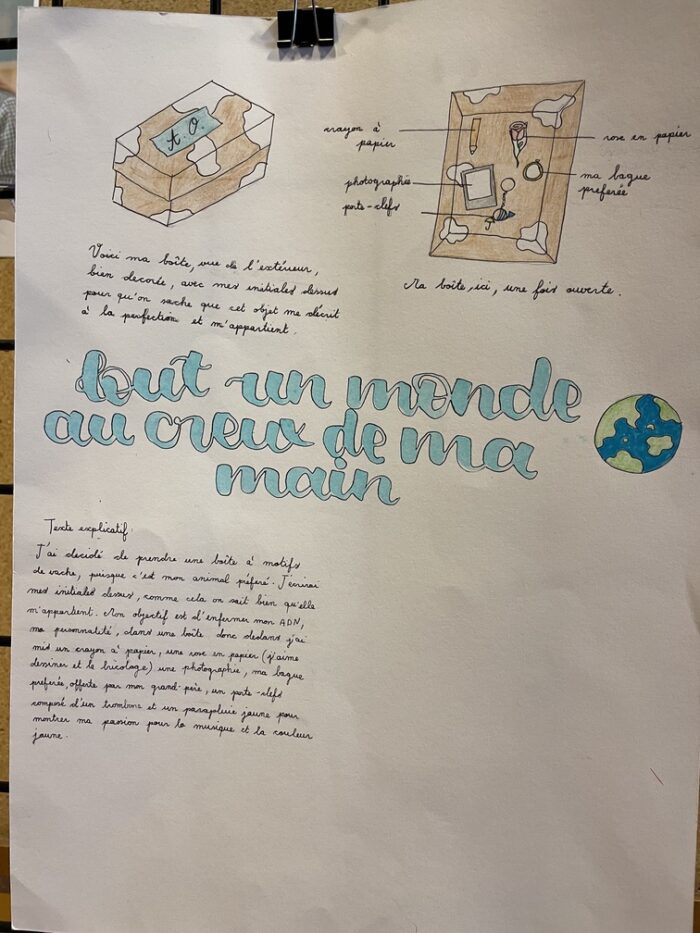 A. O.
crayon à
papier
photographie
porte-clefs
rose en papier
ma bague
preferée
Voici ma boîte, vue de l'extérieur,
bien decorée, avec mes initiales dessus
pour qu'on sache que cet objet me décrit
à la perfection et m'appartient.
Ma boîte, ici, une fois ouverte.
tout un monde
au creux de ma
main
Texte explicatif:
J'ai decidé de prendre une boîte à motifs
de vache, puisque c'est mon animal préferé. J'écrirai
mes initiales dessus, comme cela on sait bien qu'elle
m'appartient. Mon objectif est d'enfermer mon ADN,
ma personnalité, dans une boîte donc dedans j'ai
mis un crayon à papier, une rose en papier (j'aime
dessiner et le bricolage) une photographie, ma bague
preferée, offerte par mon grand-père, un porte-clefs
composé d'un trombone et un parapluie jaune pour
montrer ma passion pour la musique et la couleur
jaune.